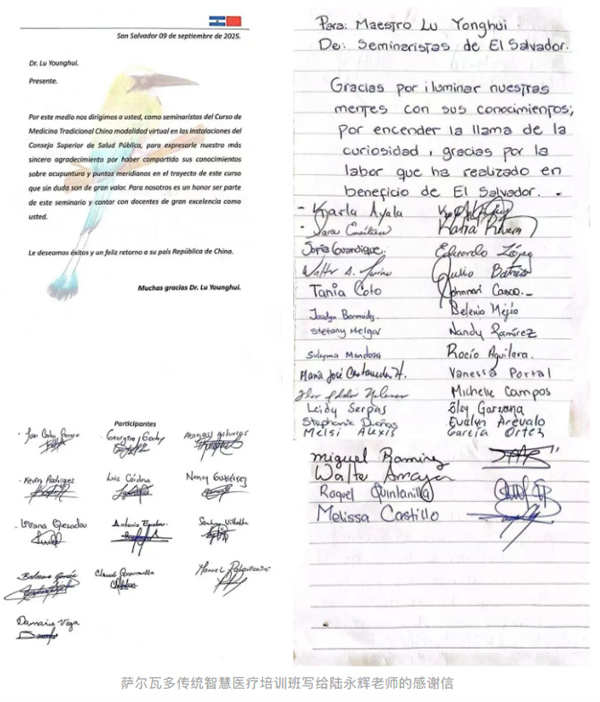 San Salvador 09 de septiembre de 2025.
Dr. Lu Younghui.
Presente.
Por este medio nos dirigimos a usted, como seminaristas del Curso de
Medicina Tradicional China modalidad virtual en las instalaciones del
Consejo Superior de Salud Pública, para expresarle nuestro más
sincero agradecimiento por haber compartido sus conocimientos
sobre acupuntura y puntos meridianos en el trayecto de este curso
que sin duda son de gran valor. Para nosotros es un honor ser parte
de este seminario y contar con docentes de gran excelencia como
usted.
Le deseamos éxitos y un feliz retorno a su país República de China.
Muchas gracias Dr. Lu Younghui.
Participantes
Kevin Rodriguez
Luis
Nancy Gutiérrez
Antonio
Manuel
Damaris Vega
Para: Maestro Lu Yonghui
De: Seminaristas de El Salvador.
Gracias por iluminar nuestras
mentes con sus conocimientos,
por encender la llama de la
curiosidad, gracias por la
labor que ha realizado en
beneficio de El Salvador.
- Karla Ayala
Katia Rivera
Sonia Guardique.
Eduardo López
Walter A.
Julio
Tania Coto
Casco.
Joselyn Bermudez
Belenia Mejía
Stefany Melgar
Nandy Ramírez
Suleyma Mendoza
Rocío Aguilera.
María José Castaneda H.
Vanessa Portal
Michelle Campos
Leidy Serpas
Eley Garzona
Stephanie Dueñas
Evelyn Arévalo
Melsi Alexis
García Ortez
Miguel Ramirez
Walter Arraya
Raquel Quintanilla
Melissa Castillo
萨尔瓦多传统智慧医疗培训班写给陆永辉老师的感谢信